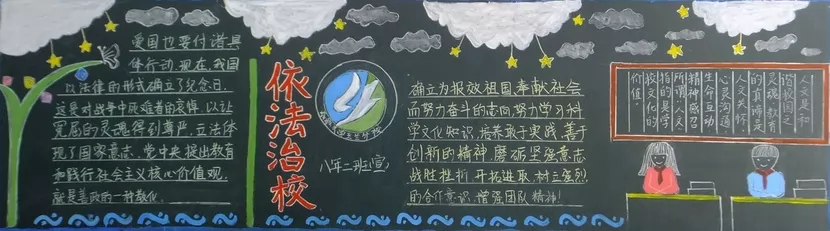 爱国也要付诸具
体行动,现在,我国
以法律的形式确立了纪念日,
这是对战争中死难者的哀悼,以让
冤屈的灵魂得到尊严,立法体
现了国家意志,党中央提出教育
和践行社会主义核心价值观,
就是善政的一种教化。
依法治校
八年二班宣
确立为报效祖国,奉献社会
而努力奋斗的志向,努力学习科
学文化知识,培养敢于实践,善于
创新的精神,磨砺坚强意志
战胜挫折,开拓进取,树立强烈
的合作意识,增强团队精神!
人文是和
谐校园之
灵魂,教育
的真谛是
人文关怀,
心灵沟通,
生命互动,
精神感召
所谓“人文”
指的是学
校文化的
价值。